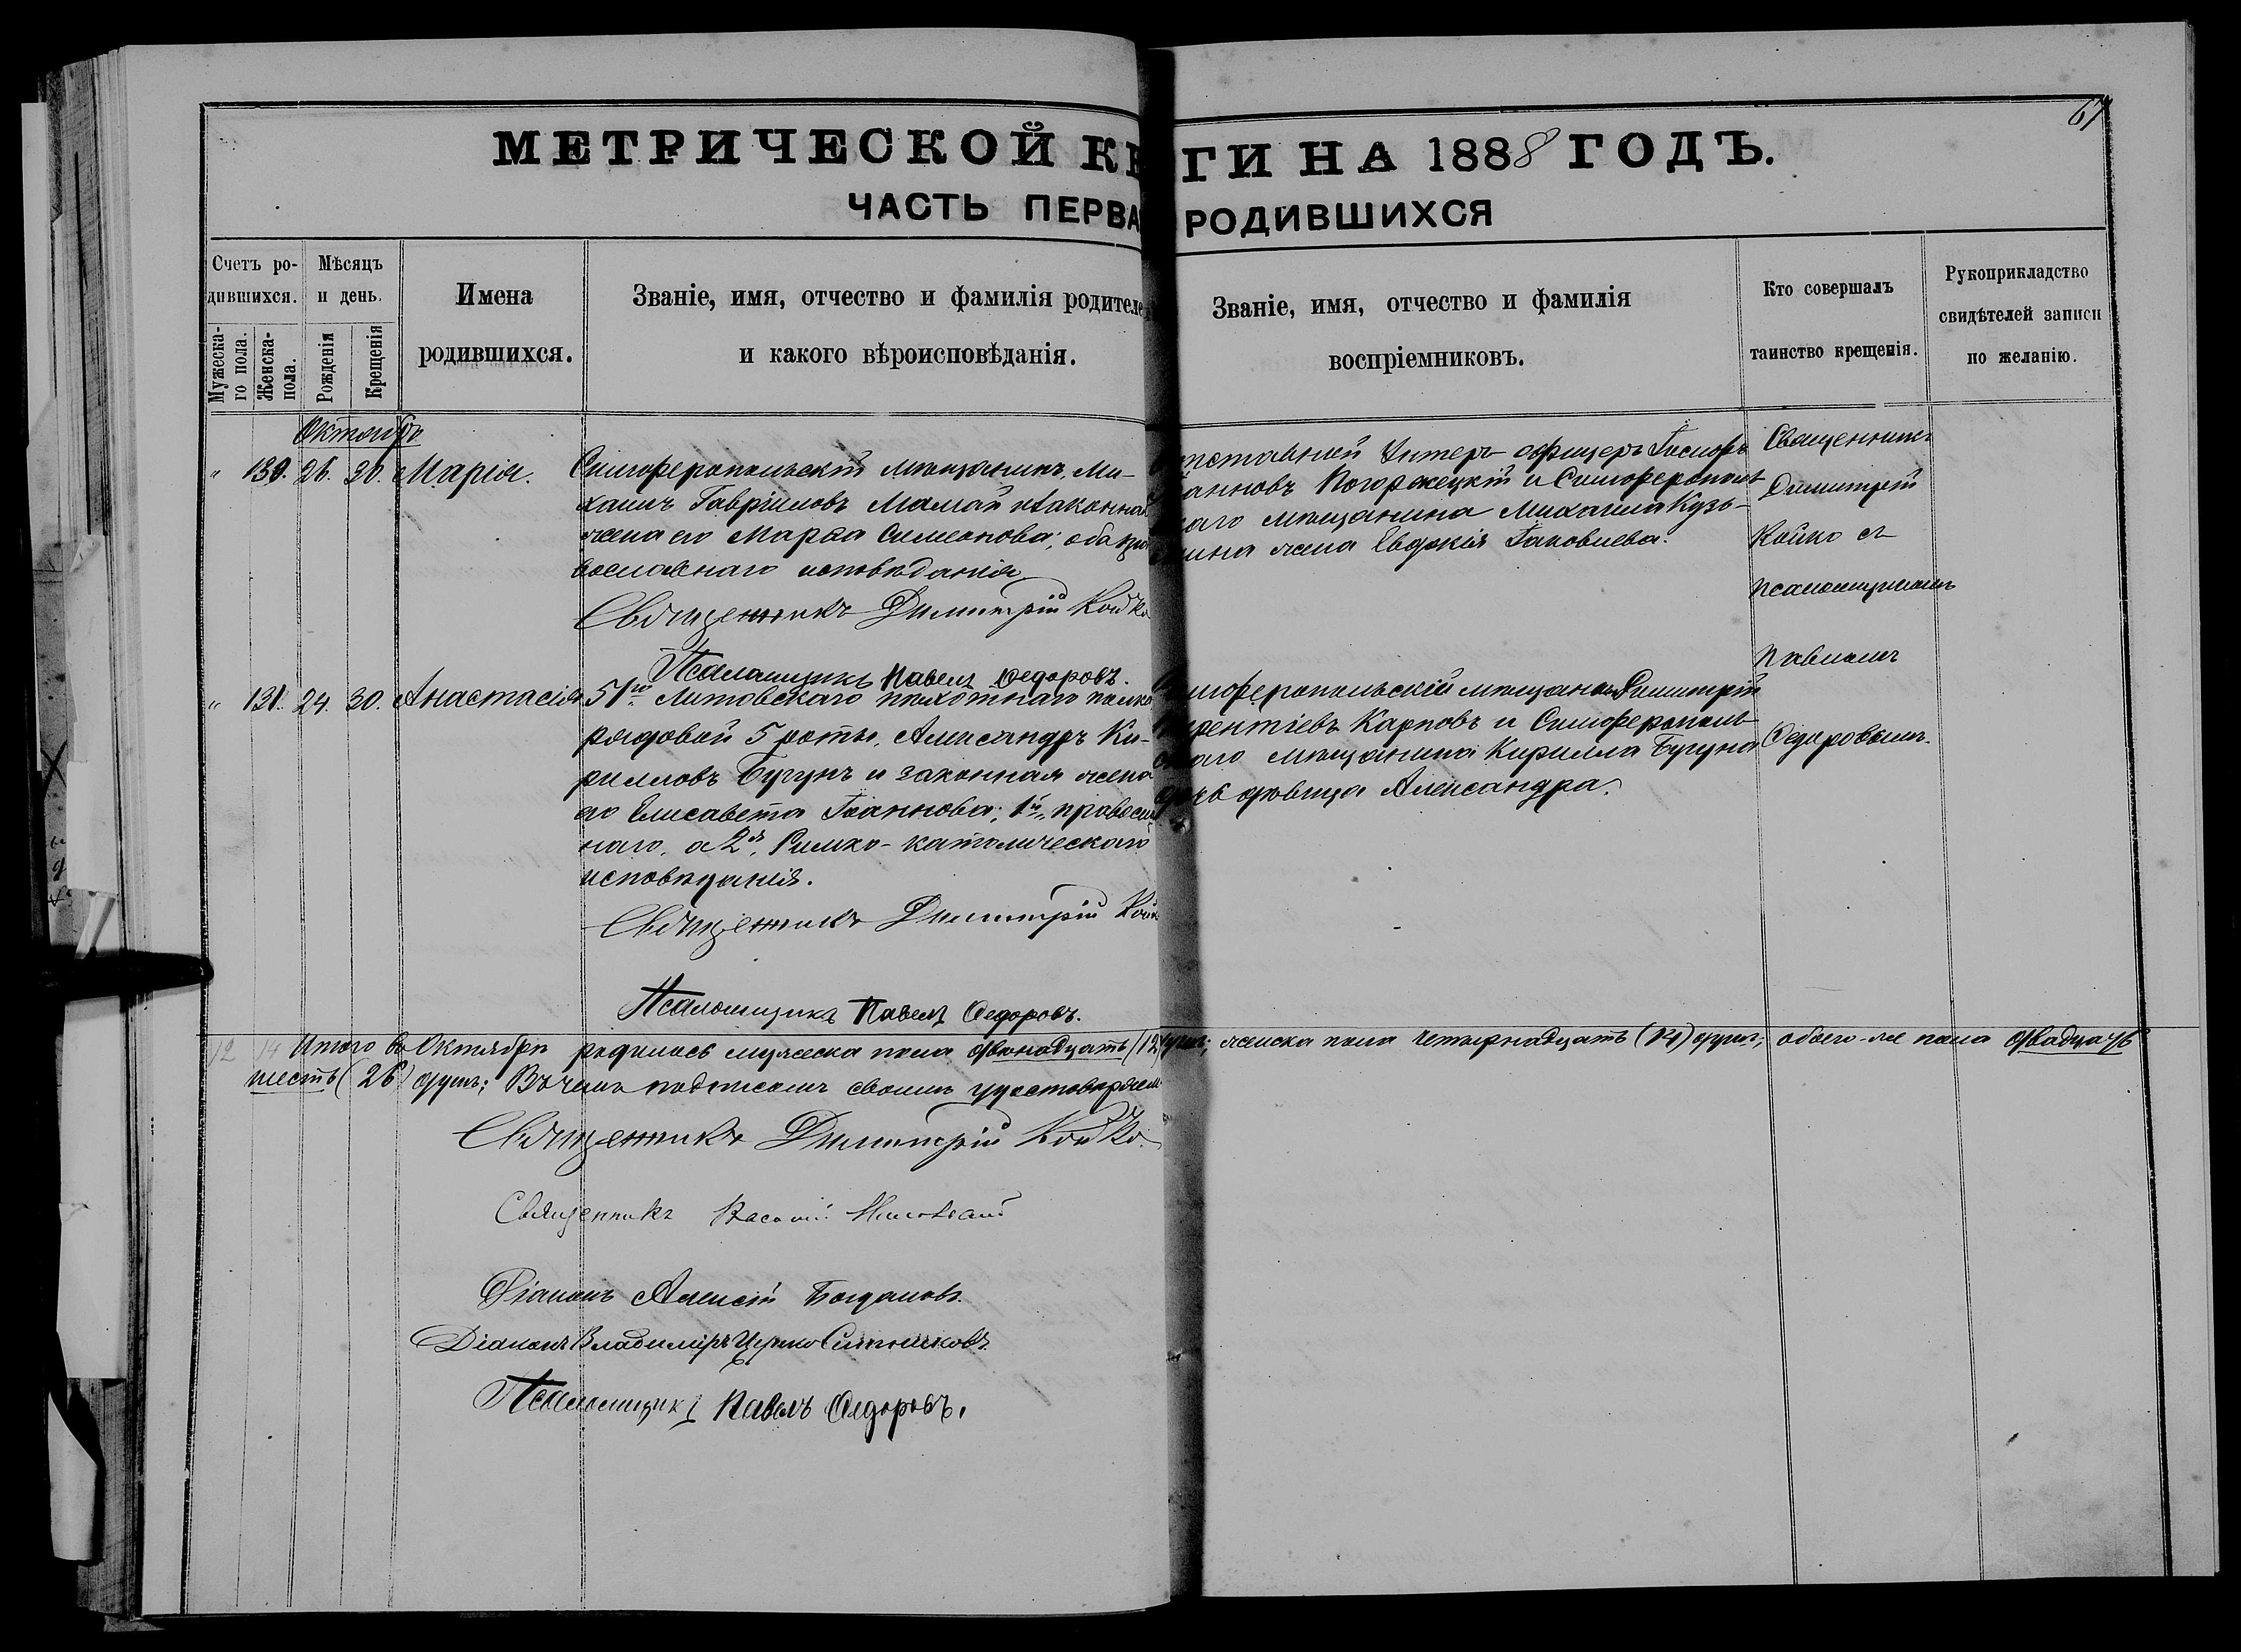 67
МЕТРИЧЕСКОЙ КН ГИ НА 1888 ГОДЪ.
ЧАСТЬ ПЕРВА РОДИВШИХСЯ
Счетъ ро-
дившихся.
Мужеска-
го пола.
Женска-
пола.
Мѣсяцъ
и день.
Рожденія
Крещенія
Имена
родившихся.
Званіе, имя, отчество и фамилія родителе
и какого вѣроисповѣданія.
Званіе, имя, отчество и фамилія
воспріемниковъ.
Кто совершалъ
таинство крещенія.
Рукоприкладство
свидѣтелей записи
по желанію.
Октябрь
" 130. 26. 30. Марія.
Симферопольскій мѣщанинъ, Ми-
хаилъ Гавріиловъ Мамай и законная
жена его Марѳа Симеонова; оба пра
вославнаго исповѣданія
Священникъ Димитрій Койко
Псаломщикъ Павелъ Ѳедоровъ.
отставной Унтеръ-офицеръ Іосифъ
Іоанновъ Погоржецкій и Симферополь
скаго мѣщанина Михаила Кузь-
мина жена Евдокія Іаковлева.
Священникъ
Димитрій
Койко съ
псаломщикомъ
Павломъ
Ѳедоровымъ.
" 131. 24. 30. Анастасія
51го Литовскаго пѣхотнаго полка
рядовой 5 роты, Александръ Ки-
рилловъ Бугунъ и законная жена
его Елисавета Іоаннова; 1й, правосла
наго, а 2я, Римко-католическаго
исповѣданія.
Священникъ Димитрій Кой
Псаломщикъ Павелъ Ѳедоровъ.
Симферопольскій мѣщанинъ Димитрій
рентіевъ Карповъ и Симферополь
скаго мѣщанина Кирилла Бугуна
дочь дѣвица Александра.
12 14 Итого въ Октябрѣ родилось мужеска пола двѣнадцать (12) душъ; женска пола четырнадцать (14) душъ; обоего-же пола двадцать
шесть (26) душъ; Въ чемъ подписомъ своимъ удостовѣряемъ
Священникъ Димитрій Койко.
Священникъ Василій
Діаконъ Алексій Богдановъ.
Діаконъ Владиміръ Ситниковъ
Псаломщикъ Павелъ Ѳедоровъ.